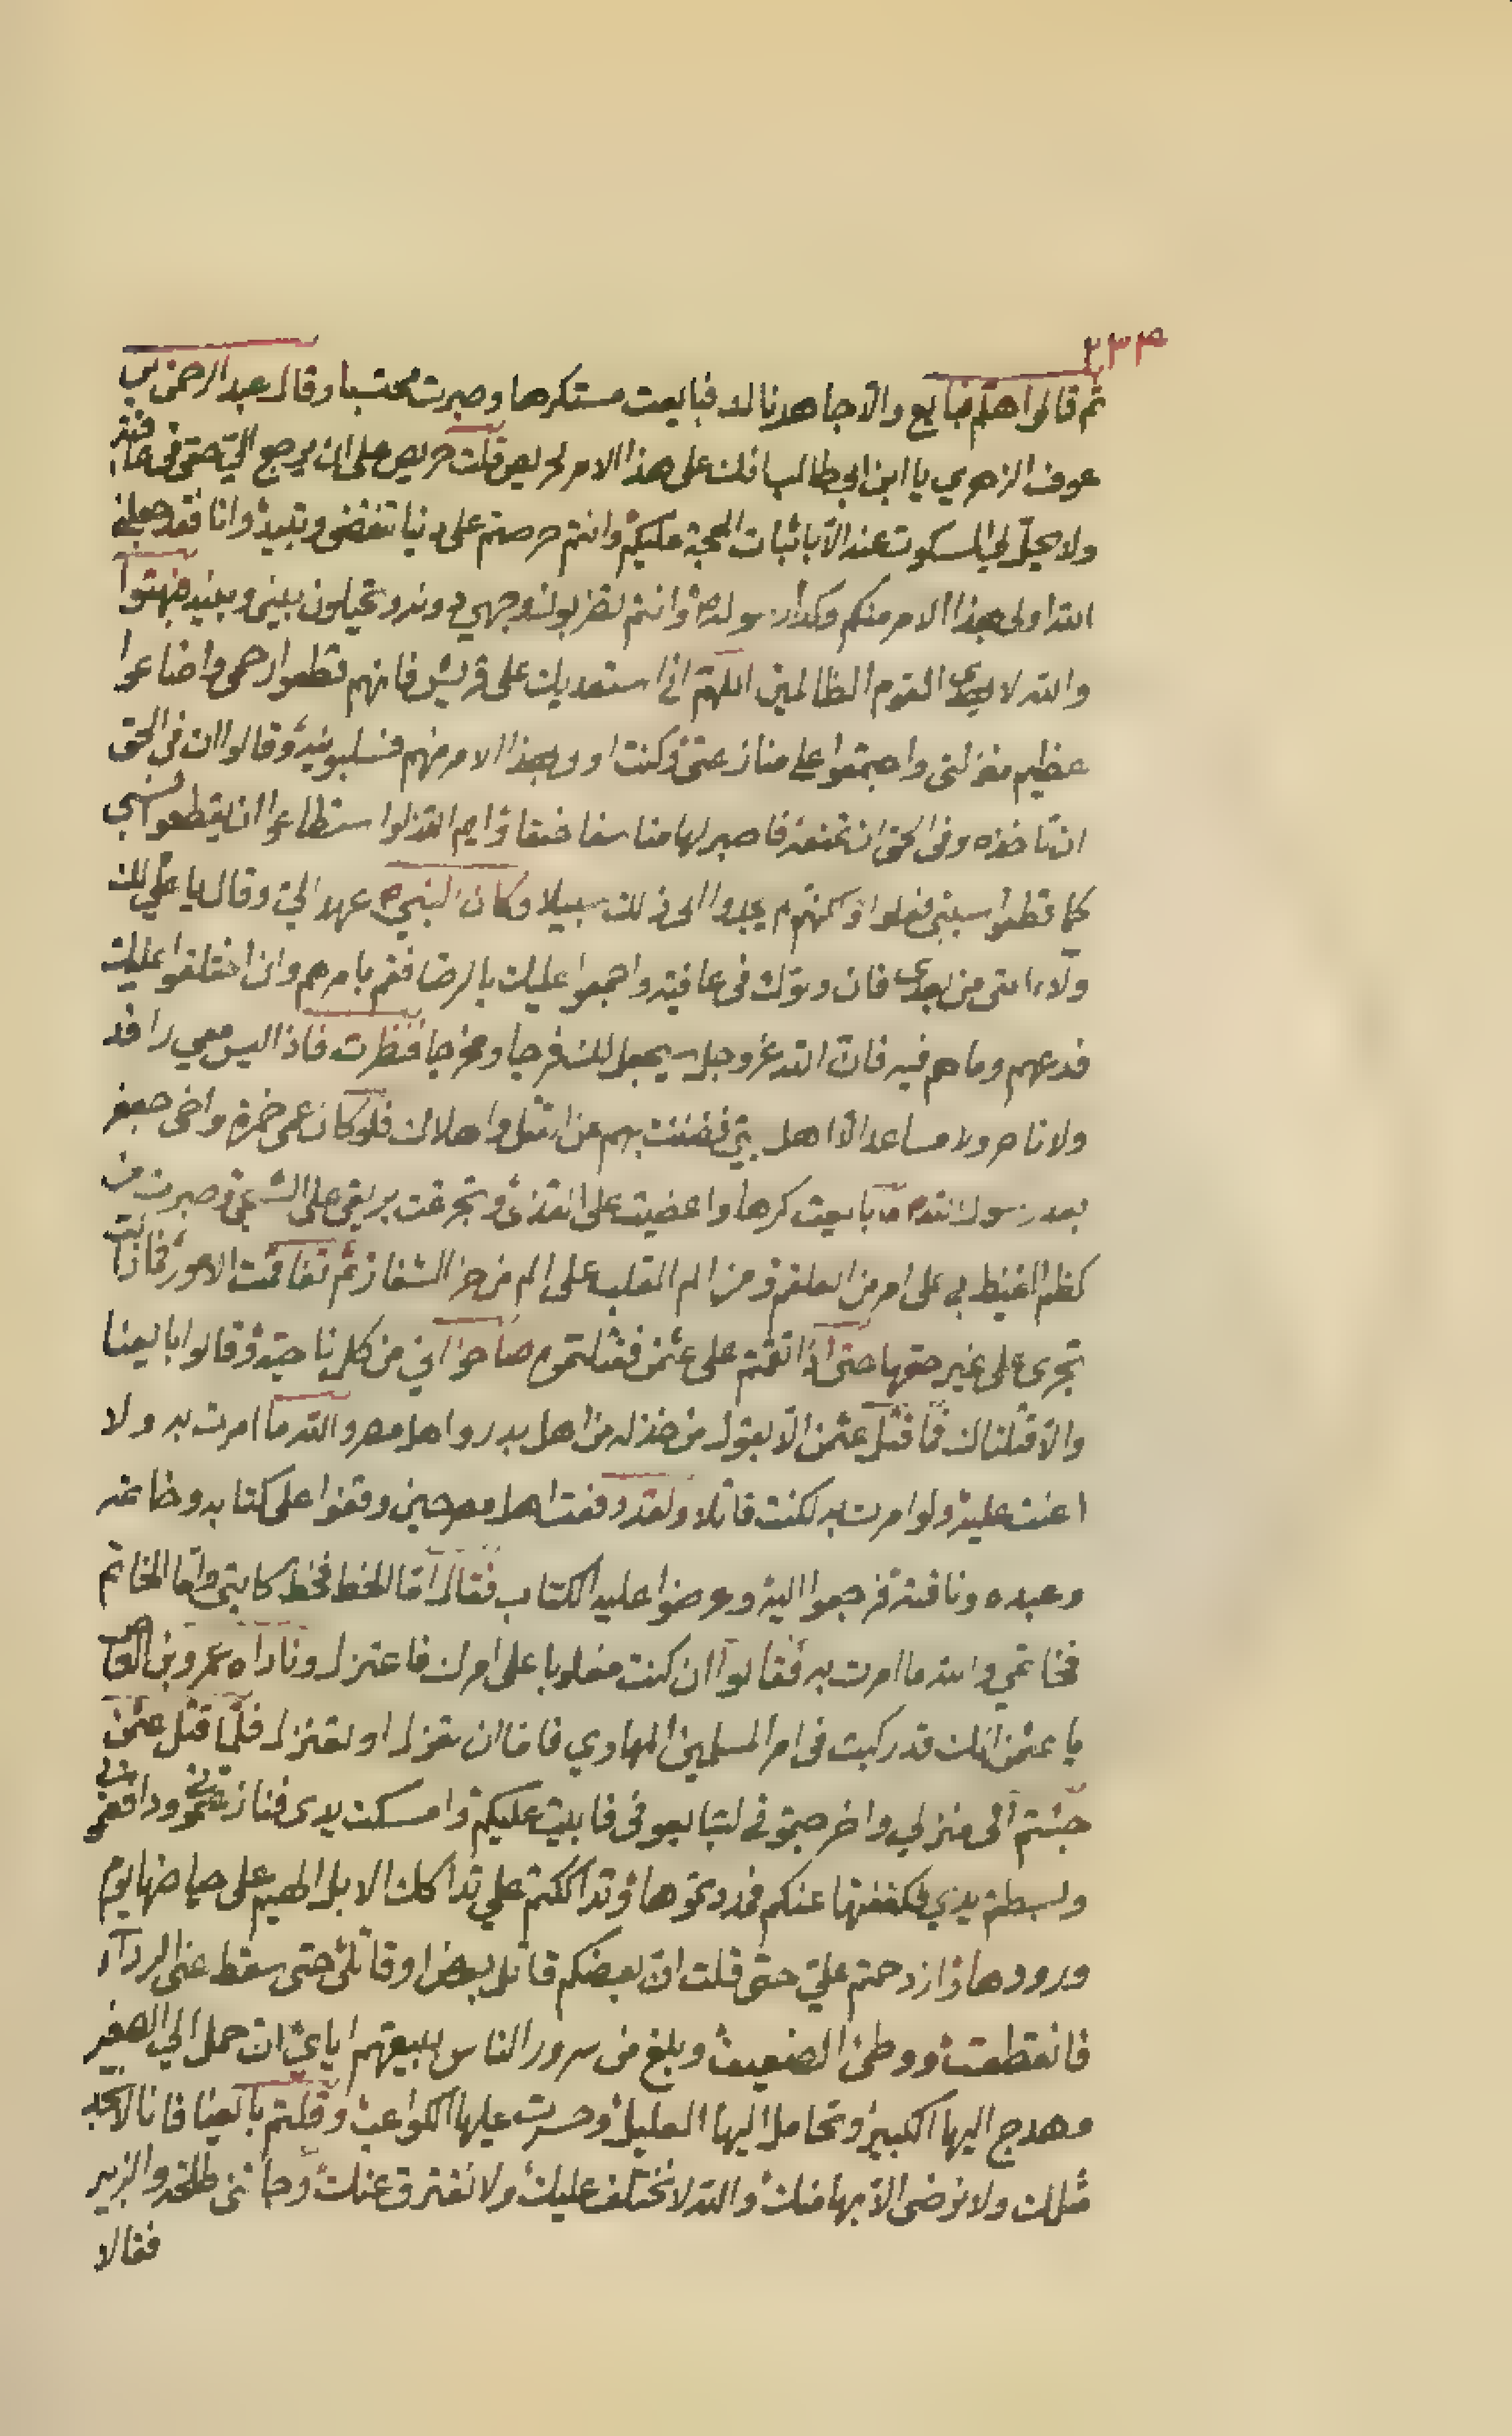 ٢٣٣
ثم قالوا هلم فبايع والا جاهدناك فبايعت مستكرها وصبرت محتسبا وقال عبد الرحمن بن
عوف الزهري يا ابن ابي طالب انك على هذا الامر لحريص قلت حريص على ان يرجع الي حقي في عافية
ولا يحل لي السكوت عنه الا باثبات الحجة عليكم وانتم حرصتم على دنيا تنقضي وتبيد وانا فقد جعلني
الله اولى بهذا الامر منكم وكذا رسوله وانتم تضربون وجهي دونه وتحيلون بيني وبينه فبهتوا
والله لا يهدي القوم الظالمين اللهم اني استعديك على قريش فانهم قطعوا رحمي واضاعوا
عظيم منزلتي واجمعوا على منازعتي وكنت اولى بهذا الامر منهم فسلبونيه وقالوا ان في الحق
ان تاخذه وفي الحق ان تمنعه فاصبر لهامنا سفا حنقا وايم الله لو استطاعوا ان يقطعوا نسبي
كما قطعوا سببي فعلوا ولكنهم لم يجدوا الى ذلك سبيلا وكان النبي عهد الي وقال يا علي لك
ولاء امتي من بعدي فان ولوك في عافية واجمعوا عليك بالرضا فقم بامرهم وان اختلفوا عليك
فدعهم وما هم فيه فان الله عز وجل سيجعل لك فرجا ومخرجا فنظرت فاذا ليس معي رافد
ولا ناصر ولا مساعد الا اهل بيتي فضننت بهم عن القتل واهلاك فلو كان عمي حمزة واخي جعفر
بعد رسول الله ما بايعت كرها واغضيت على القذى وتجرعت بريقي على الشجى وصبرت من
كظم الغيظ بي على امر من العلقم ومن الم القلب على الم من حز الشفار ثم تفاقمت الامور فما زالت
تجري على غير حقها حتى اذا نقمتم على عثمن فقتلتموه صاحوا بي من كل ناحية وقالوا بايعنا
والا قتلناك فما قتل عثمن الا بقول من خذله من اهل بدر واهل مصر والله ما امرت به ولا
اعنت عليه ولو امرت به لكنت قاتلا ولقد دفعت اهل مصر حين وقفوا على كتابه وخاتمه
وعبده وناقته فرجعوا اليه وعرضوا عليه الكتاب فقال اما الخط فخط كاتبي واما الخاتم
فخاتمي والله ما امرت به فقالوا ان كنت مغلوبا على امرك فاعتزل وناداه عمرو بن العاص
يا عثمن انك قد ركبت في امر المسلمين المهاوي فاما ان تعزل او تعتزل فلما قتل عثمن
جئتم الى منزلي واخرجتموني لتبايعوني فابيت عليكم وامسكت يدي فنازعتموني ودافعتموني
وبسطتم يدي فكففتها عنكم فمددتموها وتداككتم علي تداكك الابل الهيم على حياضها يوم
ورودها وازدحمتم علي حتى قلت ان بعضكم قاتل بعضا وقاتلي حتى سقط عني الرداء
فانقطعت ووطئ الضعيف وبلغ من سرور الناس ببيعتهم اياي ان حمل الي الصغير
وهدج اليها الكبير وتحامل اليها العليل وحسرت عليها الكواعب وقلتم بايعنا فانا لا نجد
مثلك ولا نرضى الا بها منك والله لا نختلف عليك ولا نفترق عنك وجائني طلحة والزبير
فقالا